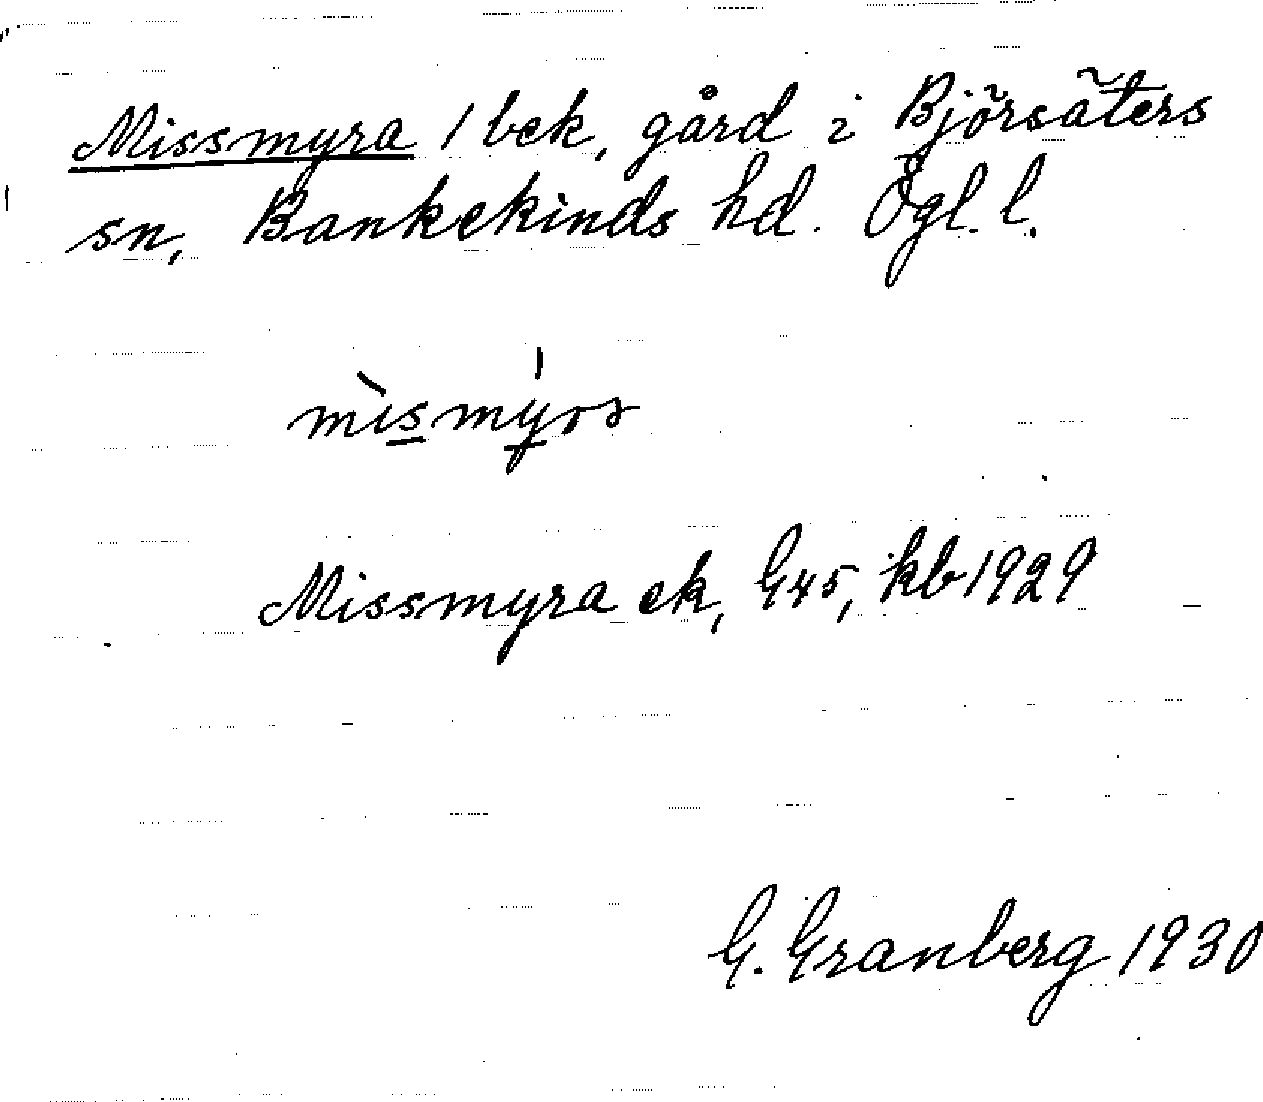 Missmyra 1 bek, gård i Björsäters
sn, Bankekinds hd. Ögl. l.
mìsmy̠rs
Missmyra ek, G45, kb 1929
G. Granberg 1930